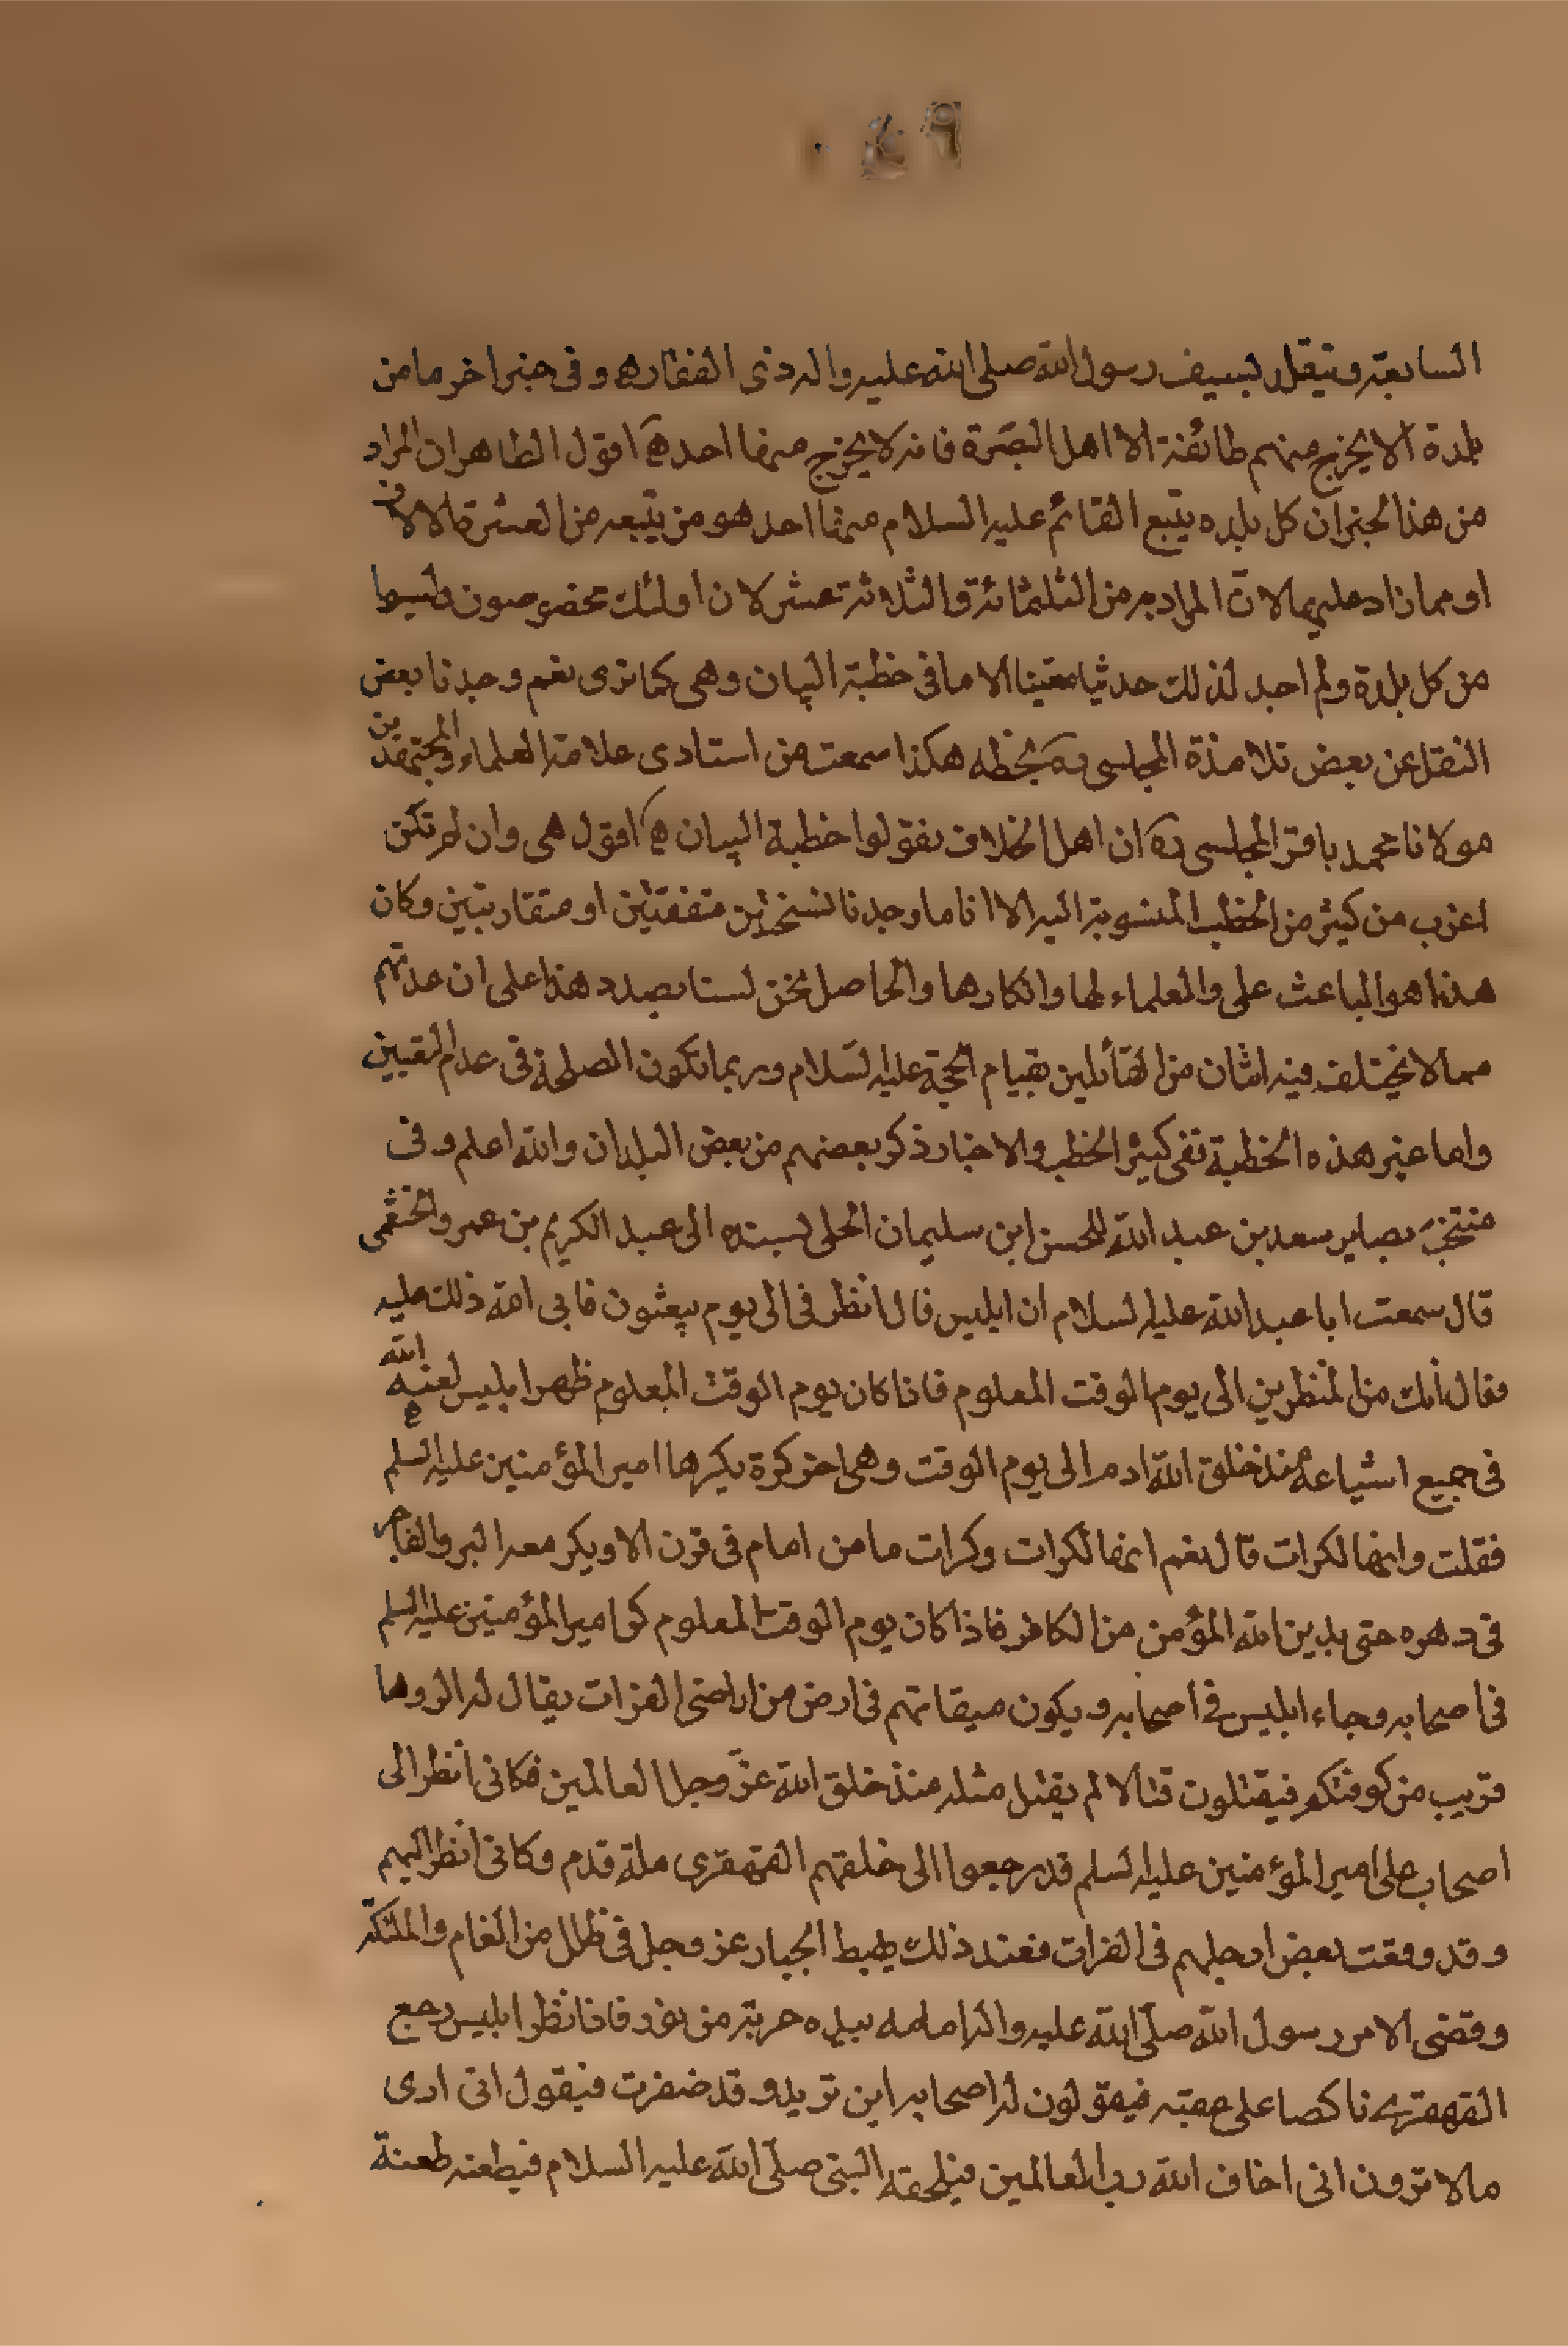 السابعة ويتقلد بسيف رسول الله صلى الله عليه واله ذى الفقار ه وفى خبر اخر ما من
بلدة الا يخرج منهم طائفة الا اهل البصرة فانه لا يخرج منها احد ه اقول الظاهر ان المراد
من هذا الخبر ان كل بلده يتبع القائم عليه السلام منها احد هو من يتبعه من العشرة الالاف
او مما زاد عليها لا ان المراد به من الثلثمائة والثلاثة عشر لان اولئك مخصوصون وليسوا
من كل بلدة ولم اجد لذلك حديثا معينا الا ما فى خطبة البيان وهى كما ترى نعم وجدنا بعض
النقل عن بعض تلامذة المجلسى ره بخطه هكذا سمعت من استادى علامة العلماء والمجتهدين
مولانا محمد باقر المجلسى ره ان اهل الخلاف نقولوا خطبة البيان ه اقول هى وان لم تكن
اغرب من كثير من الخطب المنسوبة اليه الا انا ما وجدنا نسختين متفقتين او متقاربتين وكان
هذا هو الباعث على والعلماء لها وانكارها والحاصل نحن لسنا بصدد هذا على ان عدتهم
مما لا يختلف فيه اثنان من القائلين بقيام الحجة عليه السلام وربما تكون المصلحة فى عدم التعيين
واما غير هذه الخطبة ففى كثير الخطب والاخبار ذكر بعضهم من بعض البلدان والله اعلم وفى
منتخب بصاير سعد بن عبد الله للحسن ابن سليمان الحلى بسنده الى عبد الكريم بن عمرو الخثعمى
قال سمعت ابا عبد الله عليه السلام ان ابليس قال انظرنى الى يوم يبعثون فابى الله ذلك عليه
فقال انك من المنظرين الى يوم الوقت المعلوم فاذا كان يوم الوقت المعلوم ظهر ابليس لعنه الله
فى جميع اشياعه منذ خلق الله ادم الى يوم الوقت وهى اخر كرة يكرها امير المؤمنين عليه السلم
فقلت وانها لكرات قال نعم انها لكرات وكرات ما من امام فى قرن الا ويكر معه البر والفاجر
فى دهره حتى يدين الله المؤمن من الكافر فاذا كان يوم الوقت المعلوم كر امير المؤمنين عليه السلم
فى اصحابه وجاء ابليس فى اصحابه ويكون ميقاتهم فى ارض من اراضى الفرات يقال له الروحا
قريب من كوفتكم فيقتلون قتالا لم يقتل مثله منذ خلق الله عز وجل العالمين فكانى انظر الى
اصحاب على امير المؤمنين عليه السلم قد رجعوا الى خلفهم القهقرى مائة قدم وكانى انظر اليهم
وقد وقعت بعض ارجلهم فى الفرات فعند ذلك يهبط الجبار عز وجل فى ظلل من الغام والملئكة
وقضى الامر رسول الله صلى الله عليه واله امامه بيده حربة من نور فاذا نظر ابليس رجع
القهقرى ناكصا على عقبه فيقولون له اصحابه اين تريد وقد ضفرت فيقول انى ارى
مالا ترون انى اخاف الله رب العالمين فيلحقه النبى صلى الله عليه السلام فيطعنه طعنة